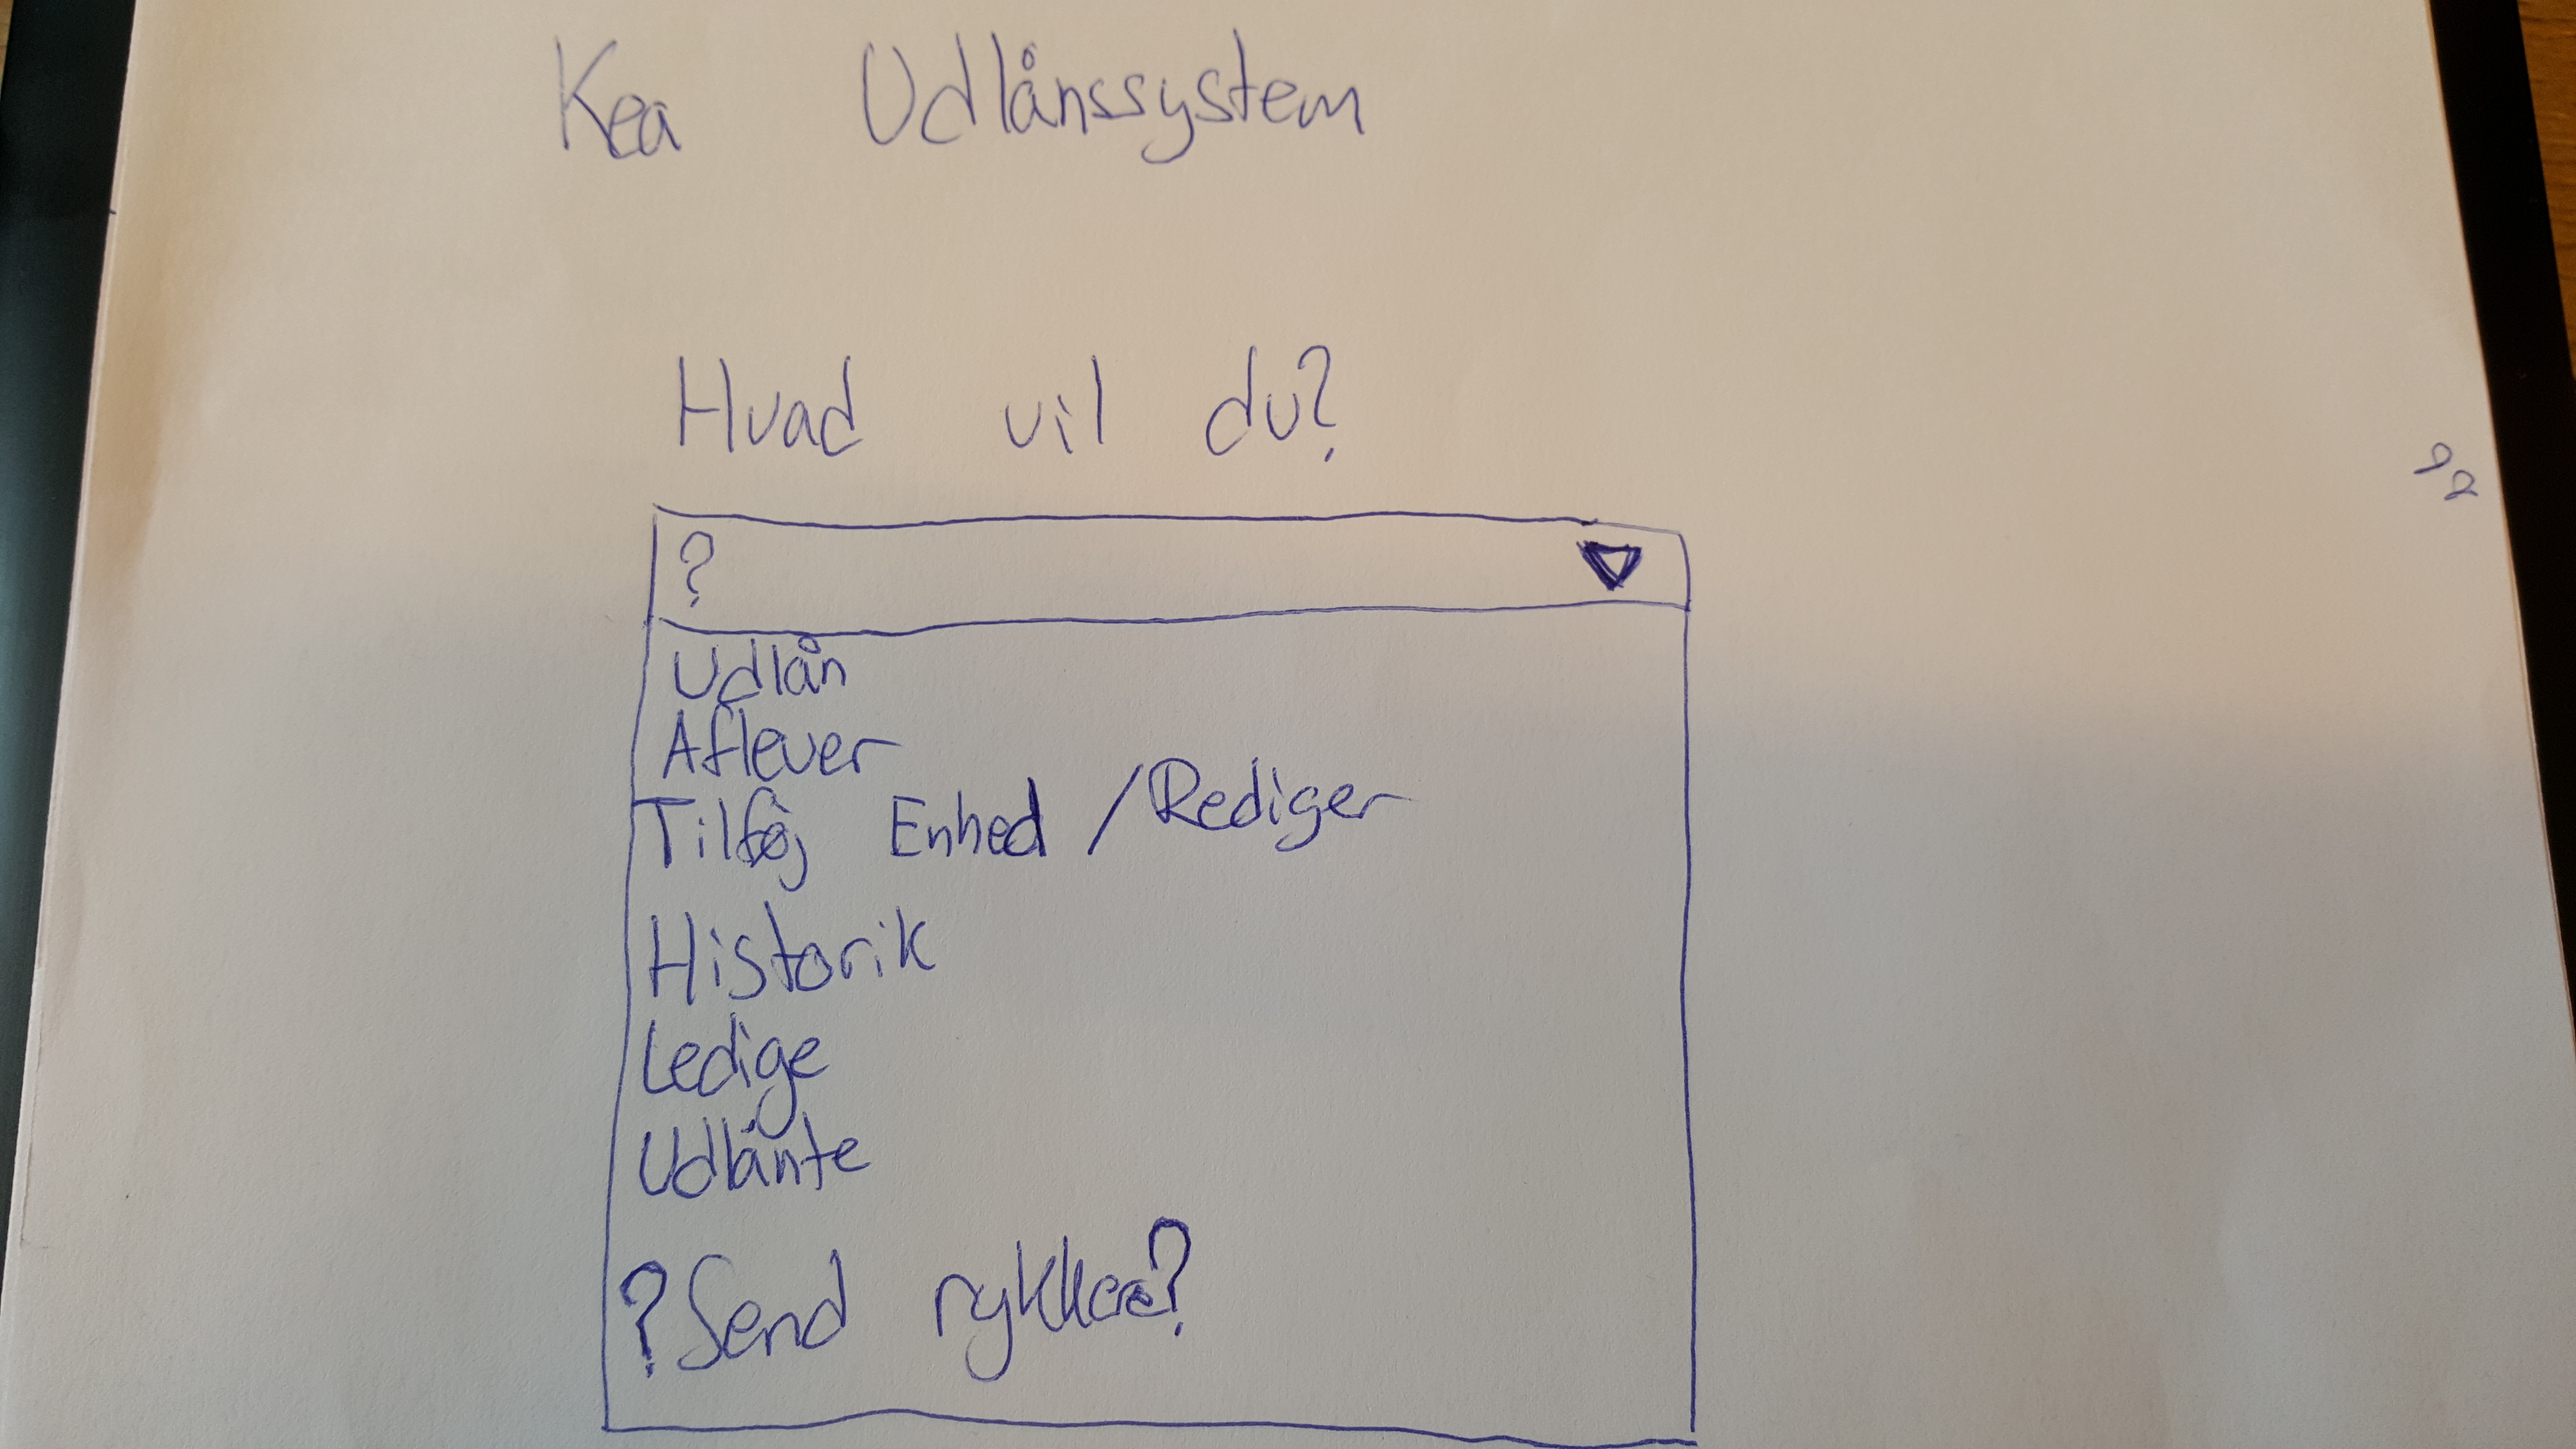 Kea Udlånssystem
Hvad vil du?
?
Udlån
Aflever
Tilføj Enhed / Rediger
Historik
Ledige
Udlånte
? Send rykker?